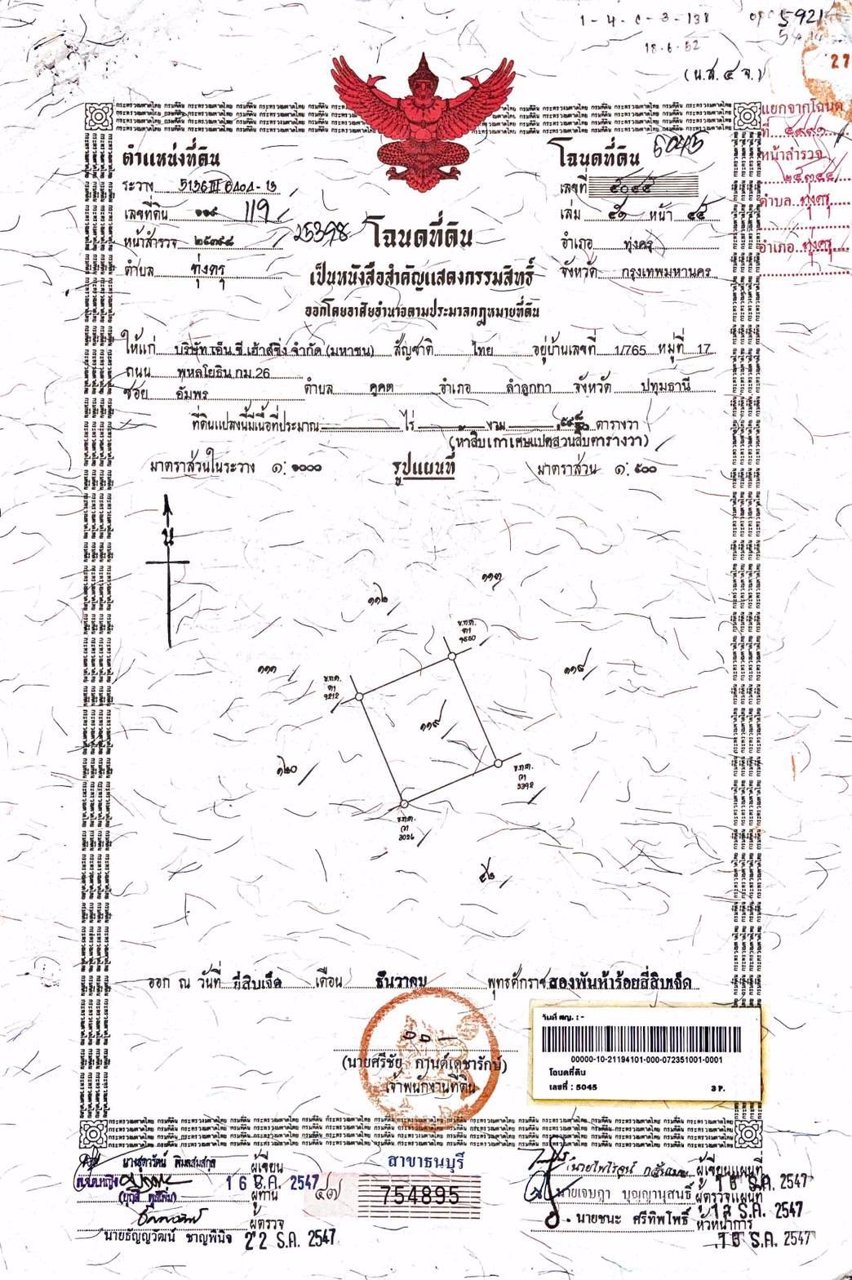 1-4-C-3-138
18-6-52
5921
(น.ส.๔ จ.)
27
แยกจากโฉนด
ที่
หน้าสำรวจ
ตำบล ทุ่งครุ
อำเภอ ทุ่งครุ
ตำแหน่งที่ดิน
ระวาง 5136 III 6404-13
เลขที่ดิน ๑๑๙ 119
หน้าสำรวจ ๒๕๓๙๘ 25398
ตำบล ทุ่งครุ
โฉนดที่ดิน 5045
เลขที่ ๕๐๔๕
เล่ม ๕๑ หน้า ๔๕
อำเภอ ทุ่งครุ
จังหวัด กรุงเทพมหานคร
โฉนดที่ดิน
เป็นหนังสือสำคัญแสดงกรรมสิทธิ์
ออกโดยอาศัยอำนาจตามประมวลกฎหมายที่ดิน
ให้แก่ บริษัท เอ็น.ซี.เฮ้าส์ซิ่ง จำกัด (มหาชน) สัญชาติ ไทย อยู่บ้านเลขที่ 1/765 หมู่ที่ 17
ถนน พหลโยธิน กม.26
ซอย อัมพร ตำบล คูคต อำเภอ ลำลูกกา จังหวัด ปทุมธานี
ที่ดินแปลงนี้มีเนื้อที่ประมาณ ไร่ งาน ตารางวา
(ห้าสิบเก้าเศษแปดส่วนสิบตารางวา)
มาตราส่วนในระวาง ๑: ๑๐๐๐ รูปแผนที่ มาตราส่วน ๑: ๕๐๐
น
๑๑๓
๑๑๒
ข.ท.ต.
ต1
9500
๑๑๑
ข.ท.ต.
ต1
9212
๑๑๘
๑๑๙
๑๒๐
ข.ท.ต.
3392
ข.ท.ต.
3026
๕๒
ออก ณ วันที่ ยี่สิบเจ็ด เดือน ธันวาคม พุทธศักราช สองพันห้าร้อยสี่สิบเจ็ด
(นายศรีชัย กานต์เตชารักษ์)
เจ้าพนักงานที่ดิน
วันที่ พญ. : -
00000-10-21194101-000-072351001-0001
โฉนดที่ดิน
เลขที่ : 5045 3 F.
ผู้เขียน
16 ธ.ค. 2547
ผู้ทาน
ผู้ตรวจ
นายธัญญวัฒน์ ชาญพินิจ 22 ธ.ค. 2547
สาขาธนบุรี
754895
ผู้เขียนแผนที่
16 ธ.ค. 2547
นายเจษฎา บุญญานุสนธิ์ ผู้ตรวจแผนที่
ธ.ค. 2547
นายชนะ ศรีทิพโพธิ์ หัวหน้าการ
ธ.ค. 2547